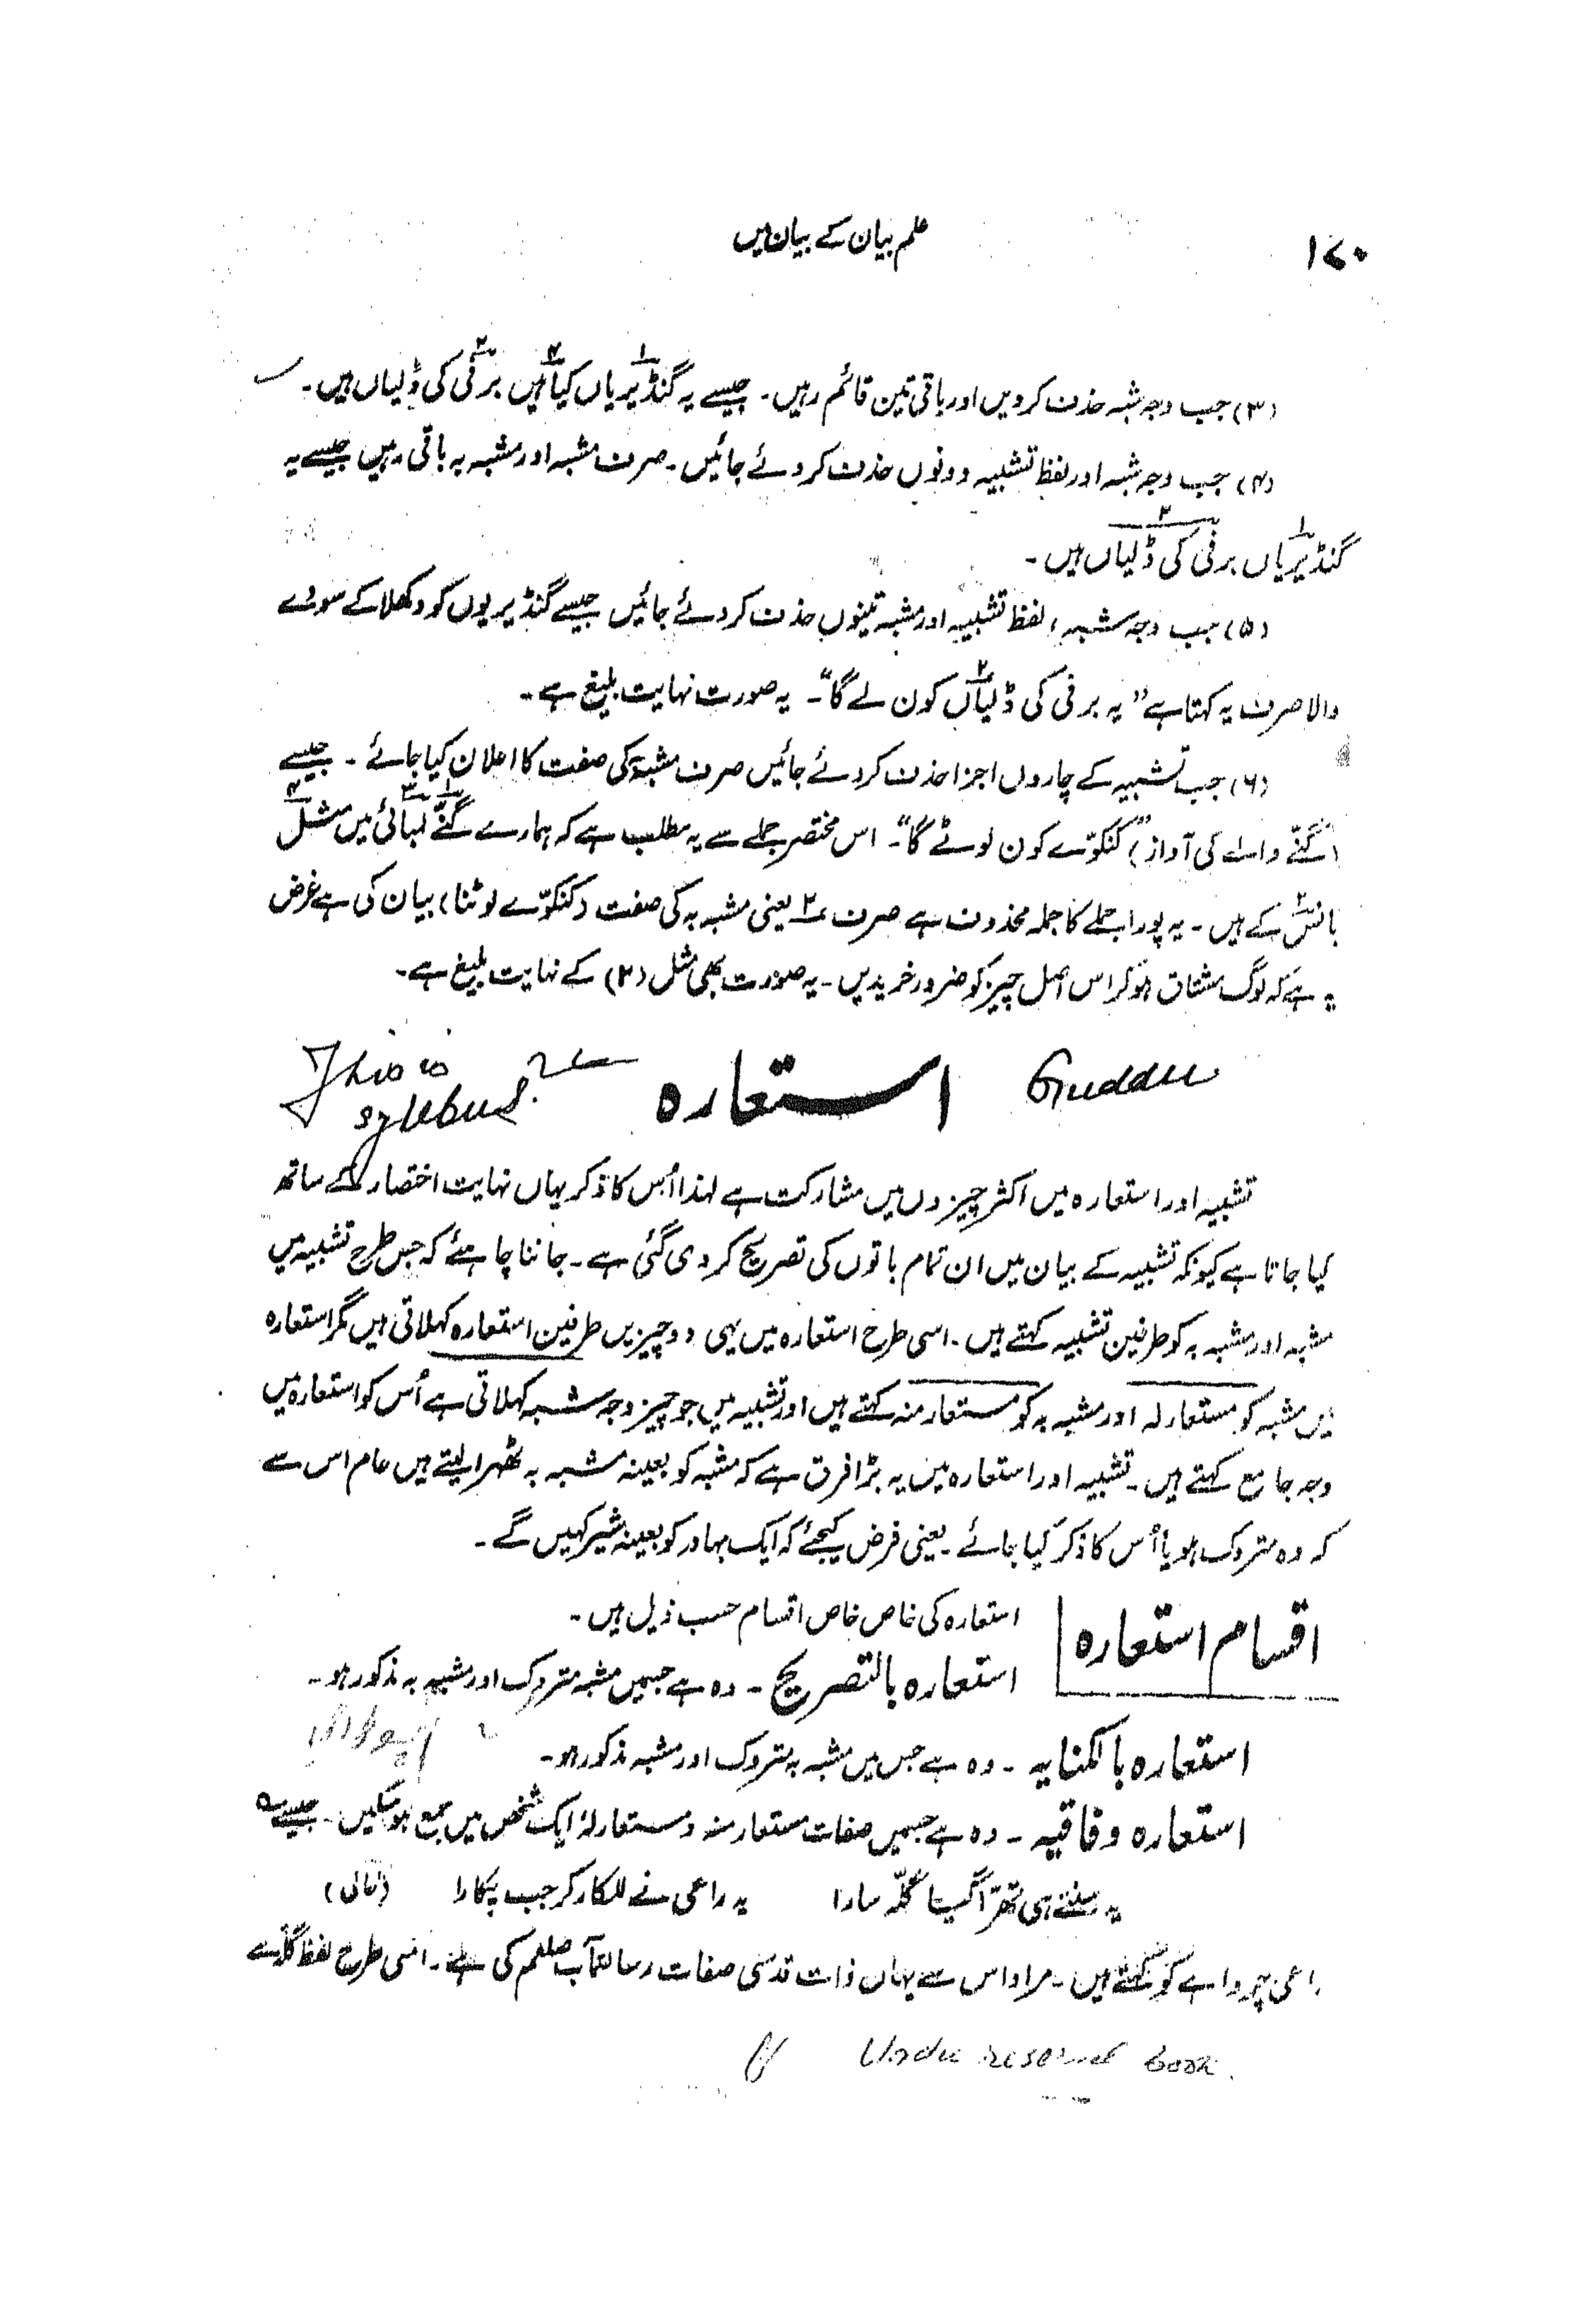 ۱۷۰
علم بیان کے بیان میں
(۳) جب وجہ شبہ حذف کردیں اور باقی تین قائم رہیں۔ جیسے یہ گنڈیریاں کیا ہیں برفی کی ڈلیاں ہیں۔
(۴) جب وجہ شبہ اور لفظ تشبیہ دونوں حذف کردئے جائیں۔ صرف مشبہ اور مشبہ بہ باقی رہیں جیسے یہ
گنڈیریاں برفی کی ڈلیاں ہیں۔
(۵) جب وجہ شبہ، لفظ تشبیہ اور مشبہ تینوں حذف کردئے جائیں جیسے گنڈیریوں کو دکھلا کے سودے
والا صرف یہ کہتا ہے "یہ برفی کی ڈلیاں کون لے گا"۔ یہ صورت نہایت بلیغ ہے۔
(۶) جب تشبیہ کے چاروں اجزا حذف کردئے جائیں صرف مشبہ کی صفت کا اعلان کیا جائے۔ جیسے
(گنّے والے کی آواز) "کنکوّے کون لوٹے گا"۔ اس مختصر جملے سے یہ مطلب ہے کہ ہمارے گنّے لمبائی میں مثل
بانس کے ہیں۔ یہ پورا جملے کا جملہ محذوف ہے صرف ۲ یعنی مشبہ بہ کی صفت (کنکوّے لوٹنا) بیان کی ہے غرض
یہ ہے کہ لوگ مشتاق ہوکر اس اصل چیز کو ضرور خریدیں۔ یہ صورت بھی مثل (۳) کے نہایت بلیغ ہے۔
Guddu
استعارہ
This is
sylebus.
تشبیہ اور استعارہ میں اکثر چیزوں میں مشارکت ہے لہذا اُس کا ذکر یہاں نہایت اختصار کے ساتھ
کیا جاتا ہے کیونکہ تشبیہ کے بیان میں ان تمام باتوں کی تصریح کردی گئی ہے۔ جاننا چاہئے کہ جس طرح تشبیہ میں
مشبہ اور مشبہ بہ کو طرفین تشبیہ کہتے ہیں۔ اسی طرح استعارہ میں یہی دو چیزیں طرفین استعارہ کہلاتی ہیں مگر استعارہ
میں مشبہ کو مستعارلہ اور مشبہ بہ کو مستعار منہ کہتے ہیں اور تشبیہ میں جو چیز وجہ شبہ کہلاتی ہے اُس کو استعارہ میں
وجہ جامع کہتے ہیں۔ تشبیہ اور استعارہ میں یہ بڑا فرق ہے کہ مشبہ کو بعینہ مشبہ بہ ٹھہرا لیتے ہیں عام اس سے
کہ وہ متروک ہو یا اُس کا ذکر کیا جائے۔ یعنی فرض کیجئے کہ ایک بہادر کو بعینہ شیر کہیں گے۔
اقسام استعارہ
استعارہ کی خاص خاص اقسام حسب ذیل ہیں۔
استعارہ بالتصریح۔ وہ ہے جسمیں مشبہ متروک اور مشبہ بہ مذکور ہو۔
استعارہ بالکنایہ۔ وہ ہے جس میں مشبہ بہ متروک اور مشبہ مذکور ہو۔
استعارہ وفاقیہ۔ وہ ہے جسمیں صفات مستعار منہ و مستعارلہٗ ایک شخص میں جمع ہوسکیں۔ جیسے
یہ سنتے ہی تھرّا گیا گلّہ سارا یہ راعی نے للکار کر جب پکارا (حالی)
راعی چرواہے کو کہتے ہیں۔ مراد اس سے یہاں ذات قدسی صفات رسالتمآب صلعم کی ہے۔ اسی طرح لفظ گلّہ سے
Urdu reserved book.